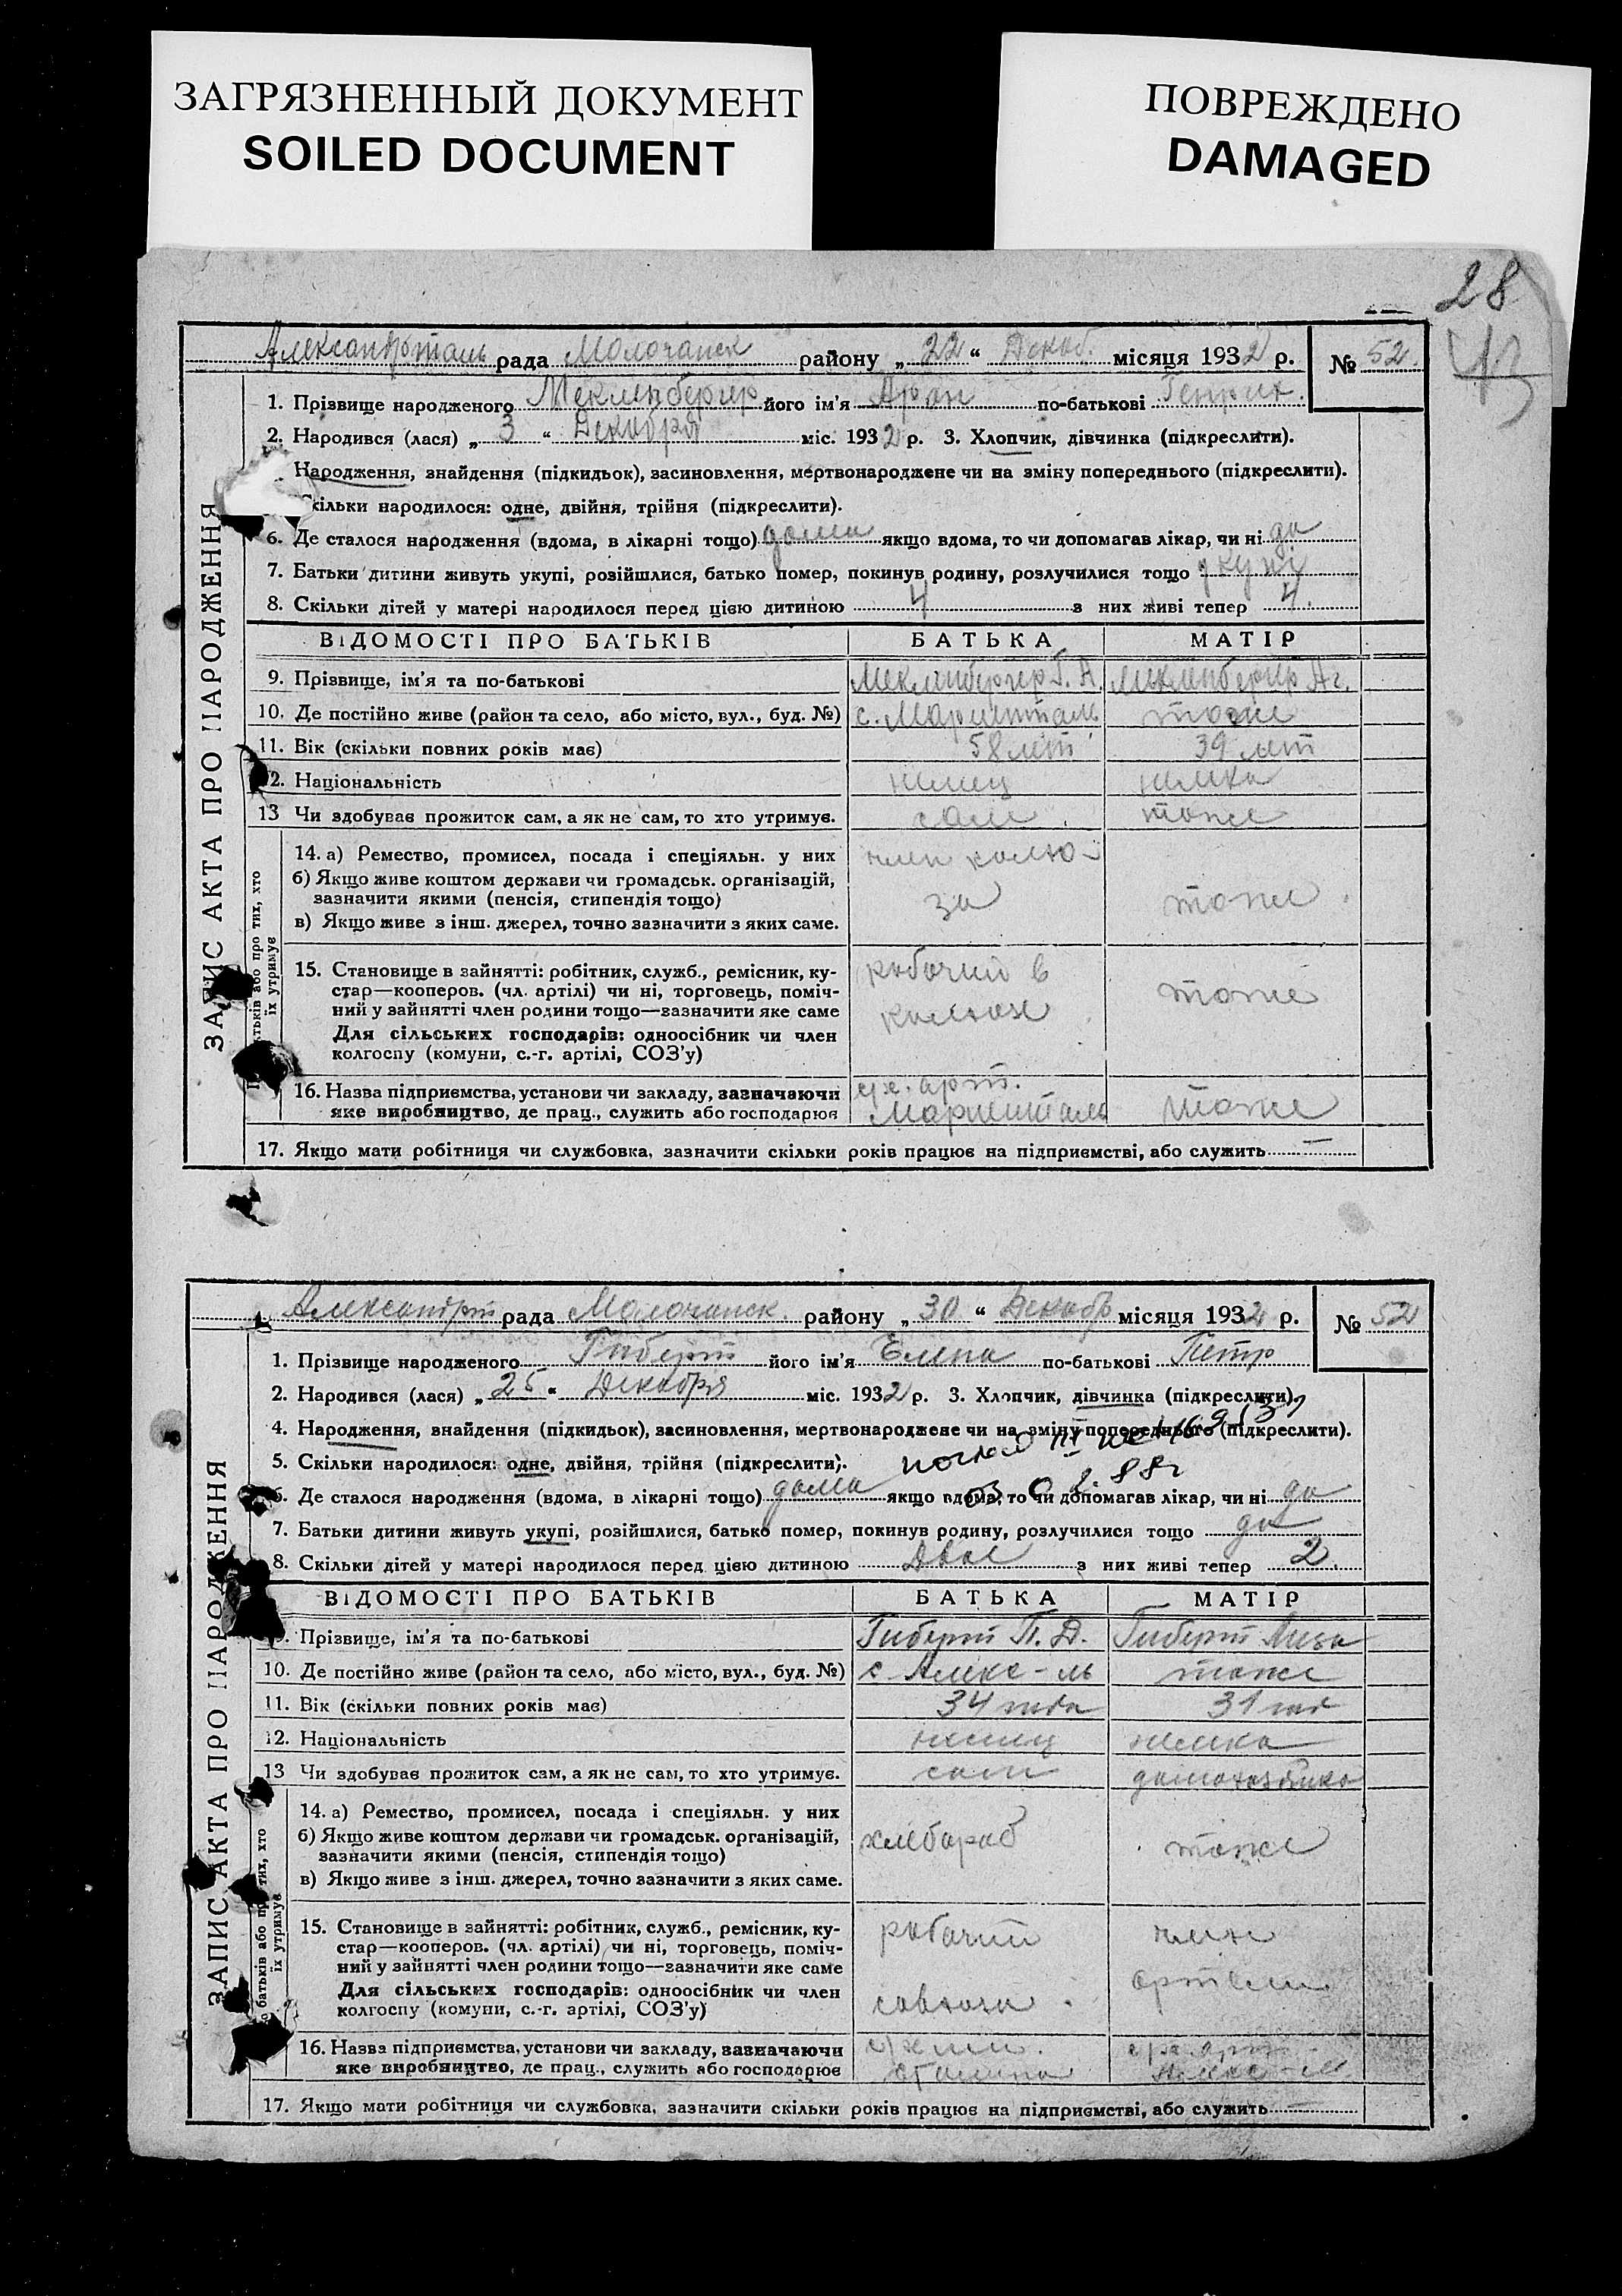 ЗАГРЯЗНЕННЫЙ ДОКУМЕНТ
SOILED DOCUMENT
ПОВРЕЖДЕНО
DAMAGED
28
Александрталь рада Молочанск району „ 22 “ Декаб. місяця 1932 р. № 52.
1. Прізвище народженого Мекленбергер його ім'я Арон по-батькові Генрих.
2. Народився (лася) „ 3 “ Декабря міс. 1932 р. 3. Хлопчик, дівчинка (підкреслити).
Народження, знайдення (підкидьок), засиновлення, мертвонароджене чи на зміну попереднього (підкреслити).
Скільки народилося: одне, двійня, трійня (підкреслити).
6. Де сталося народження (вдома, в лікарні тощо) дома якщо вдома, то чи допомагав лікар, чи ні да
7. Батьки дитини живуть укупі, розійшлися, батько помер, покинув родину, розлучилися тощо укупі
8. Скільки дітей у матері народилося перед цією дитиною 4 з них живі тепер 4.
ВІДОМОСТІ ПРО БАТЬКІВ БАТЬКА МАТІР
9. Прізвище, ім'я та по-батькові Мекленбергер Г. А. Мекленбергер Аг.
10. Де постійно живе (район та село, або місто, вул., буд. №) с. Мариенталь тоже
11. Вік (скільки повних років має) 58 лет 39 лет
12. Національність немец немка
13 Чи здобуває прожиток сам, а як не сам, то хто утримує. сам тоже
14. а) Ремество, промисел, посада і спеціяльн. у них член колхо-
б) Якщо живе коштом держави чи громадськ. організацій,
зазначити якими (пенсія, стипендія тощо) за тоже.
в) Якщо живе з інш. джерел, точно зазначити з яких саме.
15. Становище в зайнятті: робітник, служб., ремісник, ку- рабочий в
стар—кооперов. (чл. артілі) чи ні, торговець, поміч- тоже
ний у зайнятті член родини тощо—зазначити яке саме колхозе
Для сільських господарів: одноосібник чи член
колгоспу (комуни, с.-г. артілі, СОЗ'у)
16. Назва підприємства, установи чи закладу, зазначаючи с/х. арт.
яке виробництво, де прац., служить або господарює Мариенталь тоже
17. Якщо мати робітниця чи службовка, зазначити скільки років працює на підприємстві, або служить —
ЗАПИС АКТА ПРО НАРОДЖЕННЯ
тьків або про тих, хто
їх утримує
Александрт рада Молочанск. району „ 30 “ Декабр місяця 1932 р. № 52
1. Прізвище народженого Гиберт його ім'я Елена по-батькові Петр
2. Народився (лася) „ 25 “ Декабря міс. 1932 р. 3. Хлопчик, дівчинка (підкреслити).
4. Народження, знайдення (підкидьок), засиновлення, мертвонароджене чи на зміну попереднього (підкреслити).
5. Скільки народилося: одне, двійня, трійня (підкреслити).
6. Де сталося народження (вдома, в лікарні тощо) дома якщо вдома, то чи допомагав лікар, чи ні да
7. Батьки дитини живуть укупі, розійшлися, батько помер, покинув родину, розлучилися тощо да
8. Скільки дітей у матері народилося перед цією дитиною Двое з них живі тепер 2.
ВІДОМОСТІ ПРО БАТЬКІВ БАТЬКА МАТІР
9. Прізвище, ім'я та по-батькові Гиберт П. Д. Гиберт Лиза
10. Де постійно живе (район та село, або місто, вул., буд. №) с Алекс-ль тоже
11. Вік (скільки повних років має) 34 года 31 год
12. Національність немец немка
13 Чи здобуває прожиток сам, а як не сам, то хто утримує. сам домохозяйка
14. а) Ремество, промисел, посада і спеціяльн. у них
б) Якщо живе коштом держави чи громадськ. організацій, хлебороб тоже
зазначити якими (пенсія, стипендія тощо)
в) Якщо живе з інш. джерел, точно зазначити з яких саме.
15. Становище в зайнятті: робітник, служб., ремісник, ку- рабочий член
стар—кооперов. (чл. артілі) чи ні, торговець, поміч-
ний у зайнятті член родини тощо—зазначити яке саме артели
Для сільських господарів: одноосібник чи член совхоза.
колгоспу (комуни, с.-г. артілі, СОЗ'у)
16. Назва підприємства, установи чи закладу, зазначаючи с/х. арт.
яке виробництво, де прац., служить або господарює Сталина Алекс-ль
17. Якщо мати робітниця чи службовка, зазначити скільки років працює на підприємстві, або служить —
ЗАПИС АКТА ПРО НАРОДЖЕННЯ
батьків або про тих, хто
їх утримує